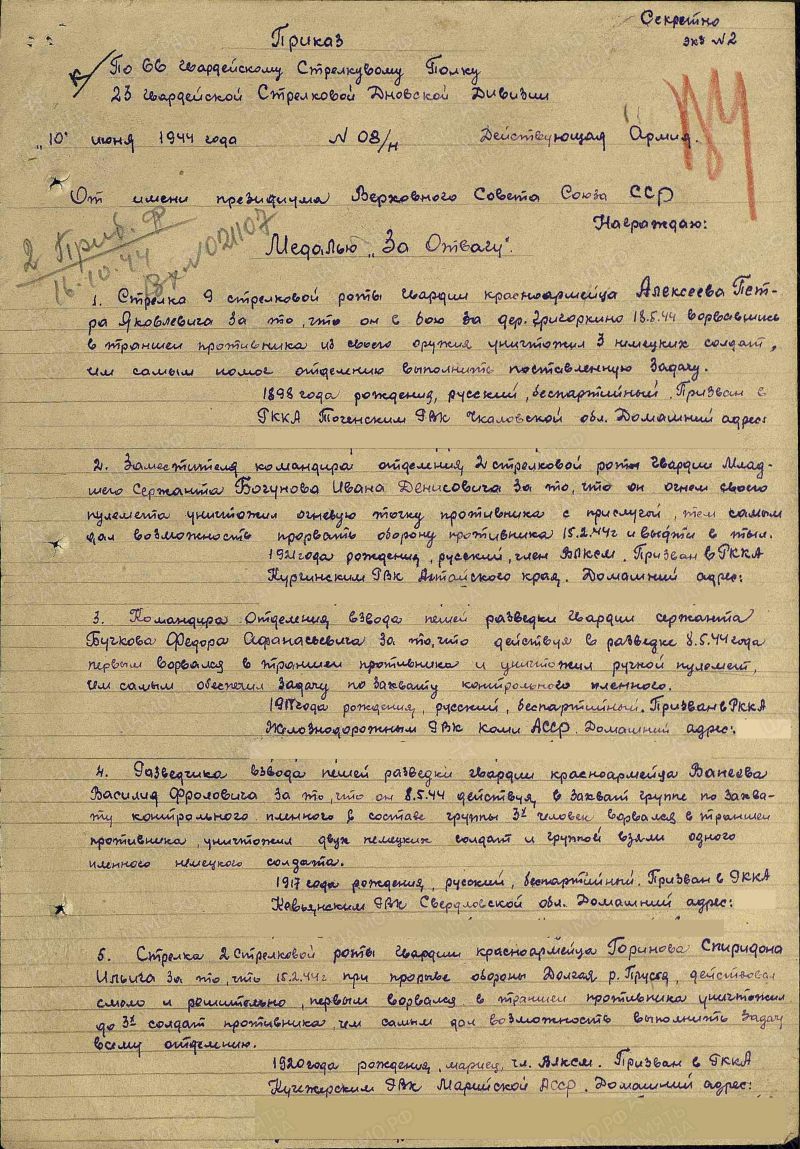 Секретно
экз №2
Приказ
По 66 Гвардейскому Стрелковому Полку
23 Гвардейской Стрелковой Дновской Дивизии
„10" июня 1944 года № 08/н Действующая Армия.
От имени президиума Верховного Совета Союза ССР
Награждаю:
Медалью „За Отвагу".
2 Приб. Ф
16.10.44
Вх №021107
1. Стрелка 9 стрелковой роты гвардии красноармейца Алексеева Пет-
ра Яковлевича за то, что он в бою за дер. Григоркино 18.5.44 ворвавшись
в траншеи противника из своего оружия уничтожил 3 немецких солдат,
чем самым помог отделению выполнить поставленную задачу.
1898 года рождения, русский, беспартийный. Призван в
РККА РВК Чкаловской обл. Домашний адрес:
2. Заместителя командира отделения 2 стрелковой роты гвардии Млад-
шего Сержанта Богунова Ивана Денисовича за то, что он огнем своего
пулемета уничтожил огневую точку противника с прислугой, тем самым
дал возможность прорвать оборону противника 15.2.44г и выйти в тыл.
1921 года рождения, русский, член ВЛКСМ. Призван в РККА
РВК Алтайского края. Домашний адрес:
3. Командира Отделения взвода пешей разведки гвардии сержанта
Бучкова Федора Афанасьевича за то, что действуя в разведке 8.5.44 года
первым ворвался в траншеи противника и уничтожил ручной пулемет,
чем самым обеспечил задачу по захвату контрольного пленного.
года рождения, русский, беспартийный. Призван в РККА
Железнодорожным РВК Коми АССР. Домашний адрес:
4. Разведчика взвода пешей разведки гвардии красноармейца Ванеева
Василия Фроловича за то, что он 8.5.44 действуя в захват группе по захва-
ту контрольного пленного в составе группы 3х человек ворвался в траншеи
противника, уничтожил двух немецких солдат и группой взяли одного
пленного немецкого солдата.
1917 года рождения, русский, беспартийный. Призван в РККА
РВК Свердловской обл. Домашний адрес:
5. Стрелка 2 Стрелковой роты гвардии красноармейца Горинова Спиридона
Ильича за то, что 15.2.44г при прорыве обороны Долгая р. действовал
смело и решительно, первым ворвался в траншеи противника уничтожил
до 3х солдат противника, чем самым дал возможность выполнить задачу
всему отделению.
1920 года рождения, мариец, чл. ВЛКСМ. Призван в РККА
РВК Марийской АССР. Домашний адрес: